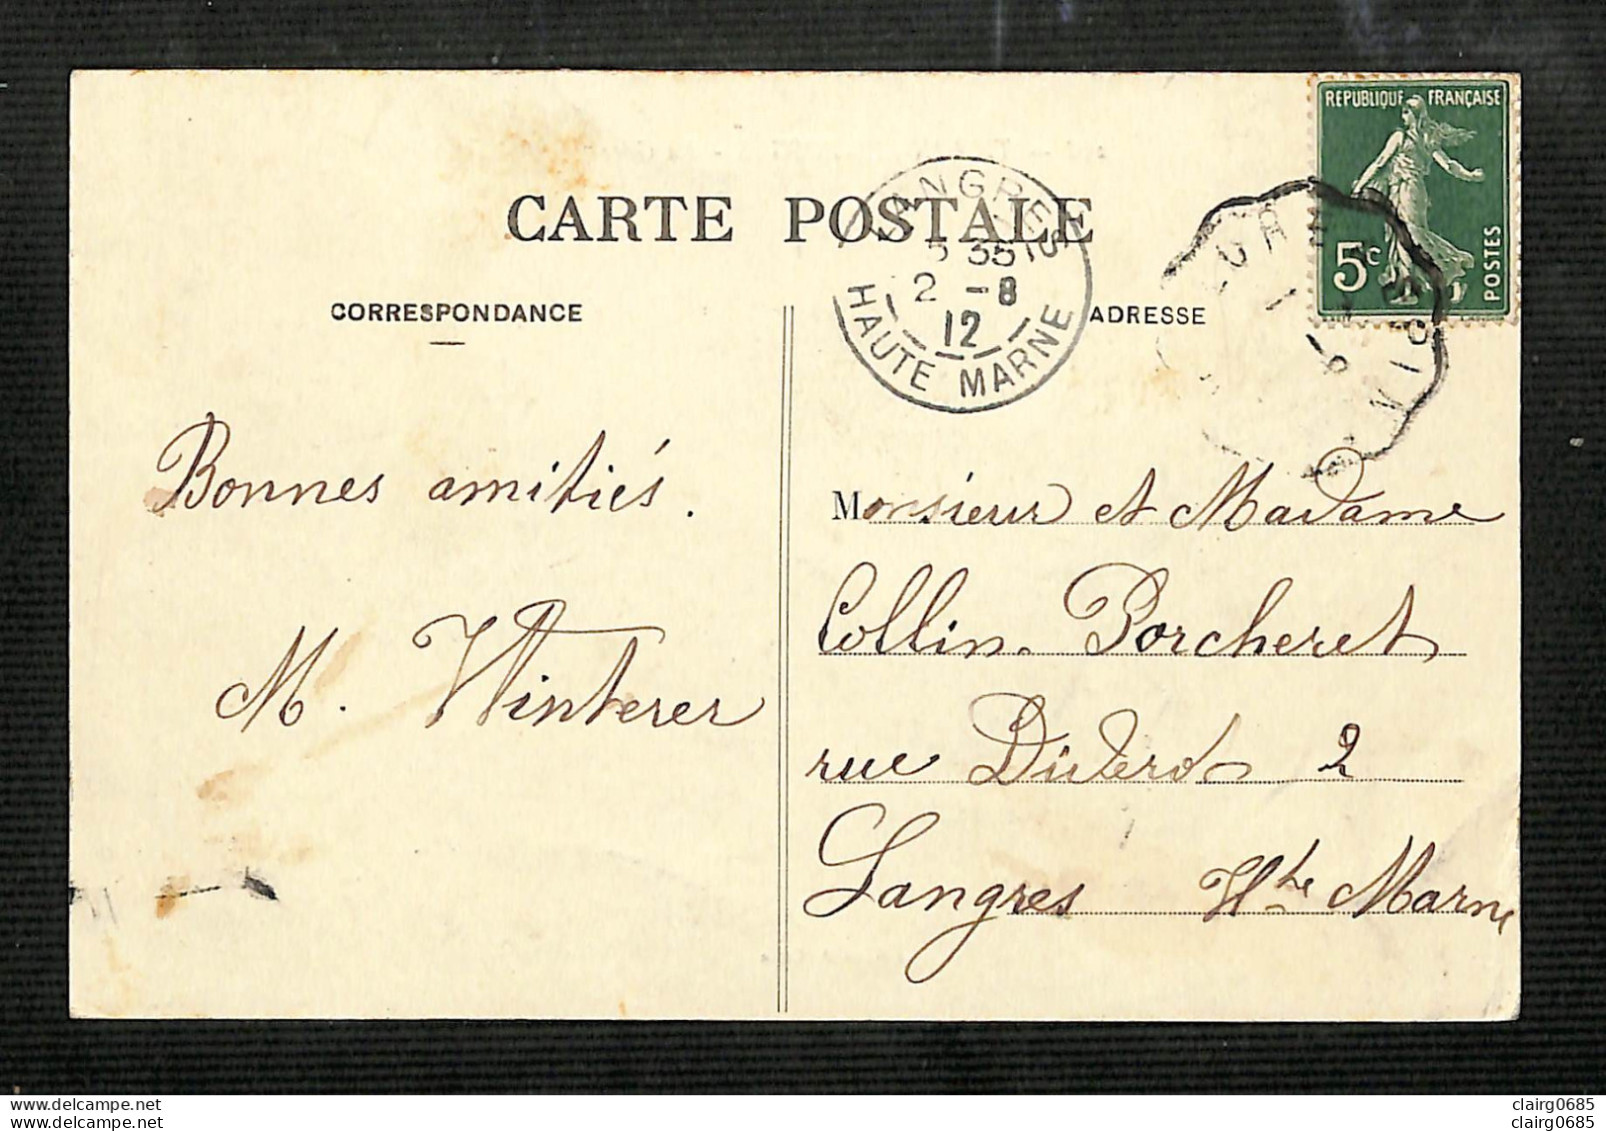 CARTE POSTALE
CORRESPONDANCE
ADRESSE
REPUBLIQUE FRANÇAISE
5c
POSTES
LANGRES
5 35
2 - 8
12
HAUTE MARNE
Bonnes amitiés.
M. Winterer
Monsieur et Madame
Collin. Porcheret
rue Diderot 2
Langres Hte Marne
www.delcampe.net
clairg0685
clairg0685